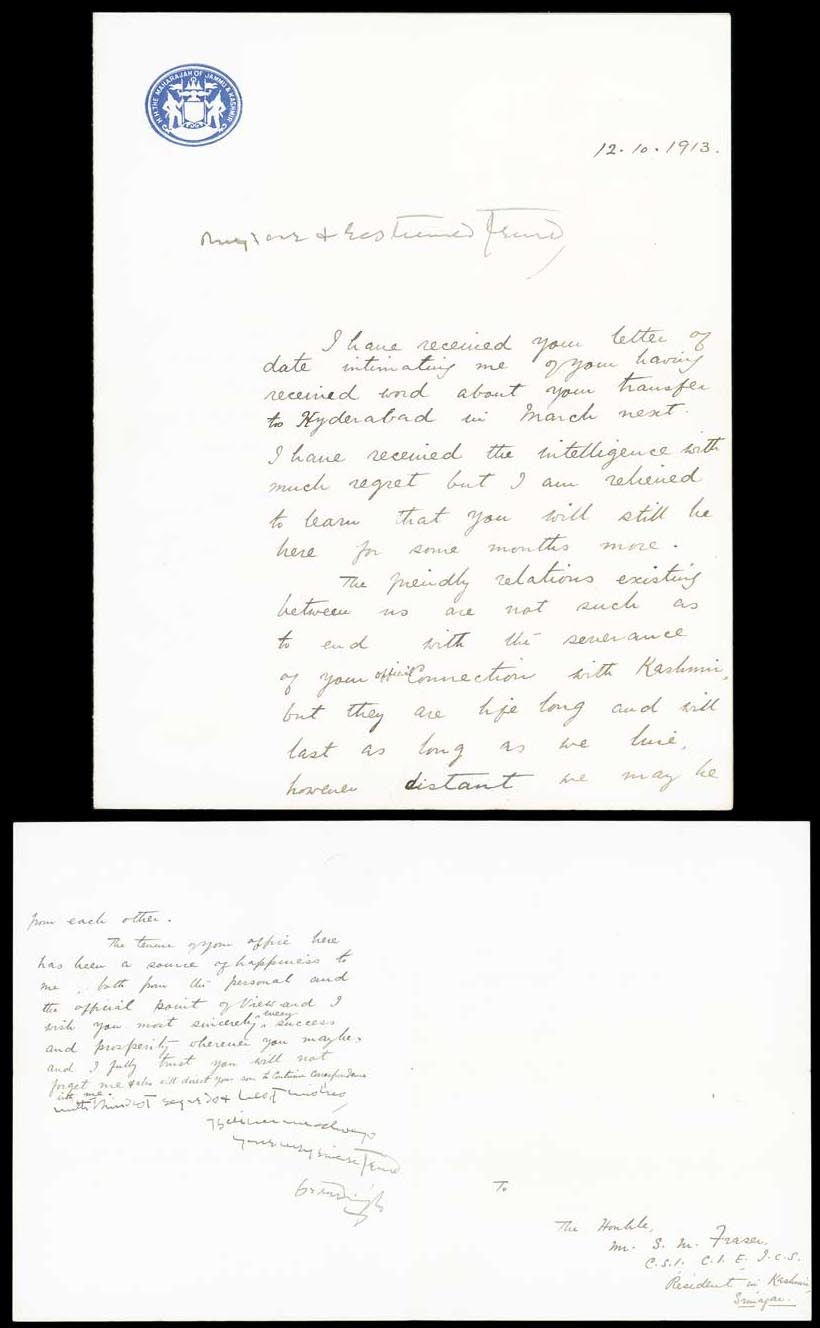 H.H. THE MAHARAJAH OF JAMMU & KASHMIR
12.10.1913.
I have received your letter of
date intimating me of your having
received word about your transfer
to Hyderabad in March next.
I have received the intelligence with
much regret but I am relieved
to learn that you will still be
here for some months more.
The friendly relations existing
between us are not such as
to end with the severance
of your official Connection with Kashmir,
but they are life long and will
last as long as we live,
however distant we may be
from each other.
The tenure of your office here
has been a source of happiness to
me, both from the personal and
the official point of View and I
wish you most sincerely every success
and prosperity wherever you maybe,
and I fully trust you will not
forget me & also will direct your son to Continue Correspondence
with me.
with kindest regards & best wishes,
Believe me always
yours very sincere friend
To
The Honble,
Mr. S. M. Fraser,
C.S.I. C.I.E. I.C.S.
Resident in Kashmir,
Srinagar.